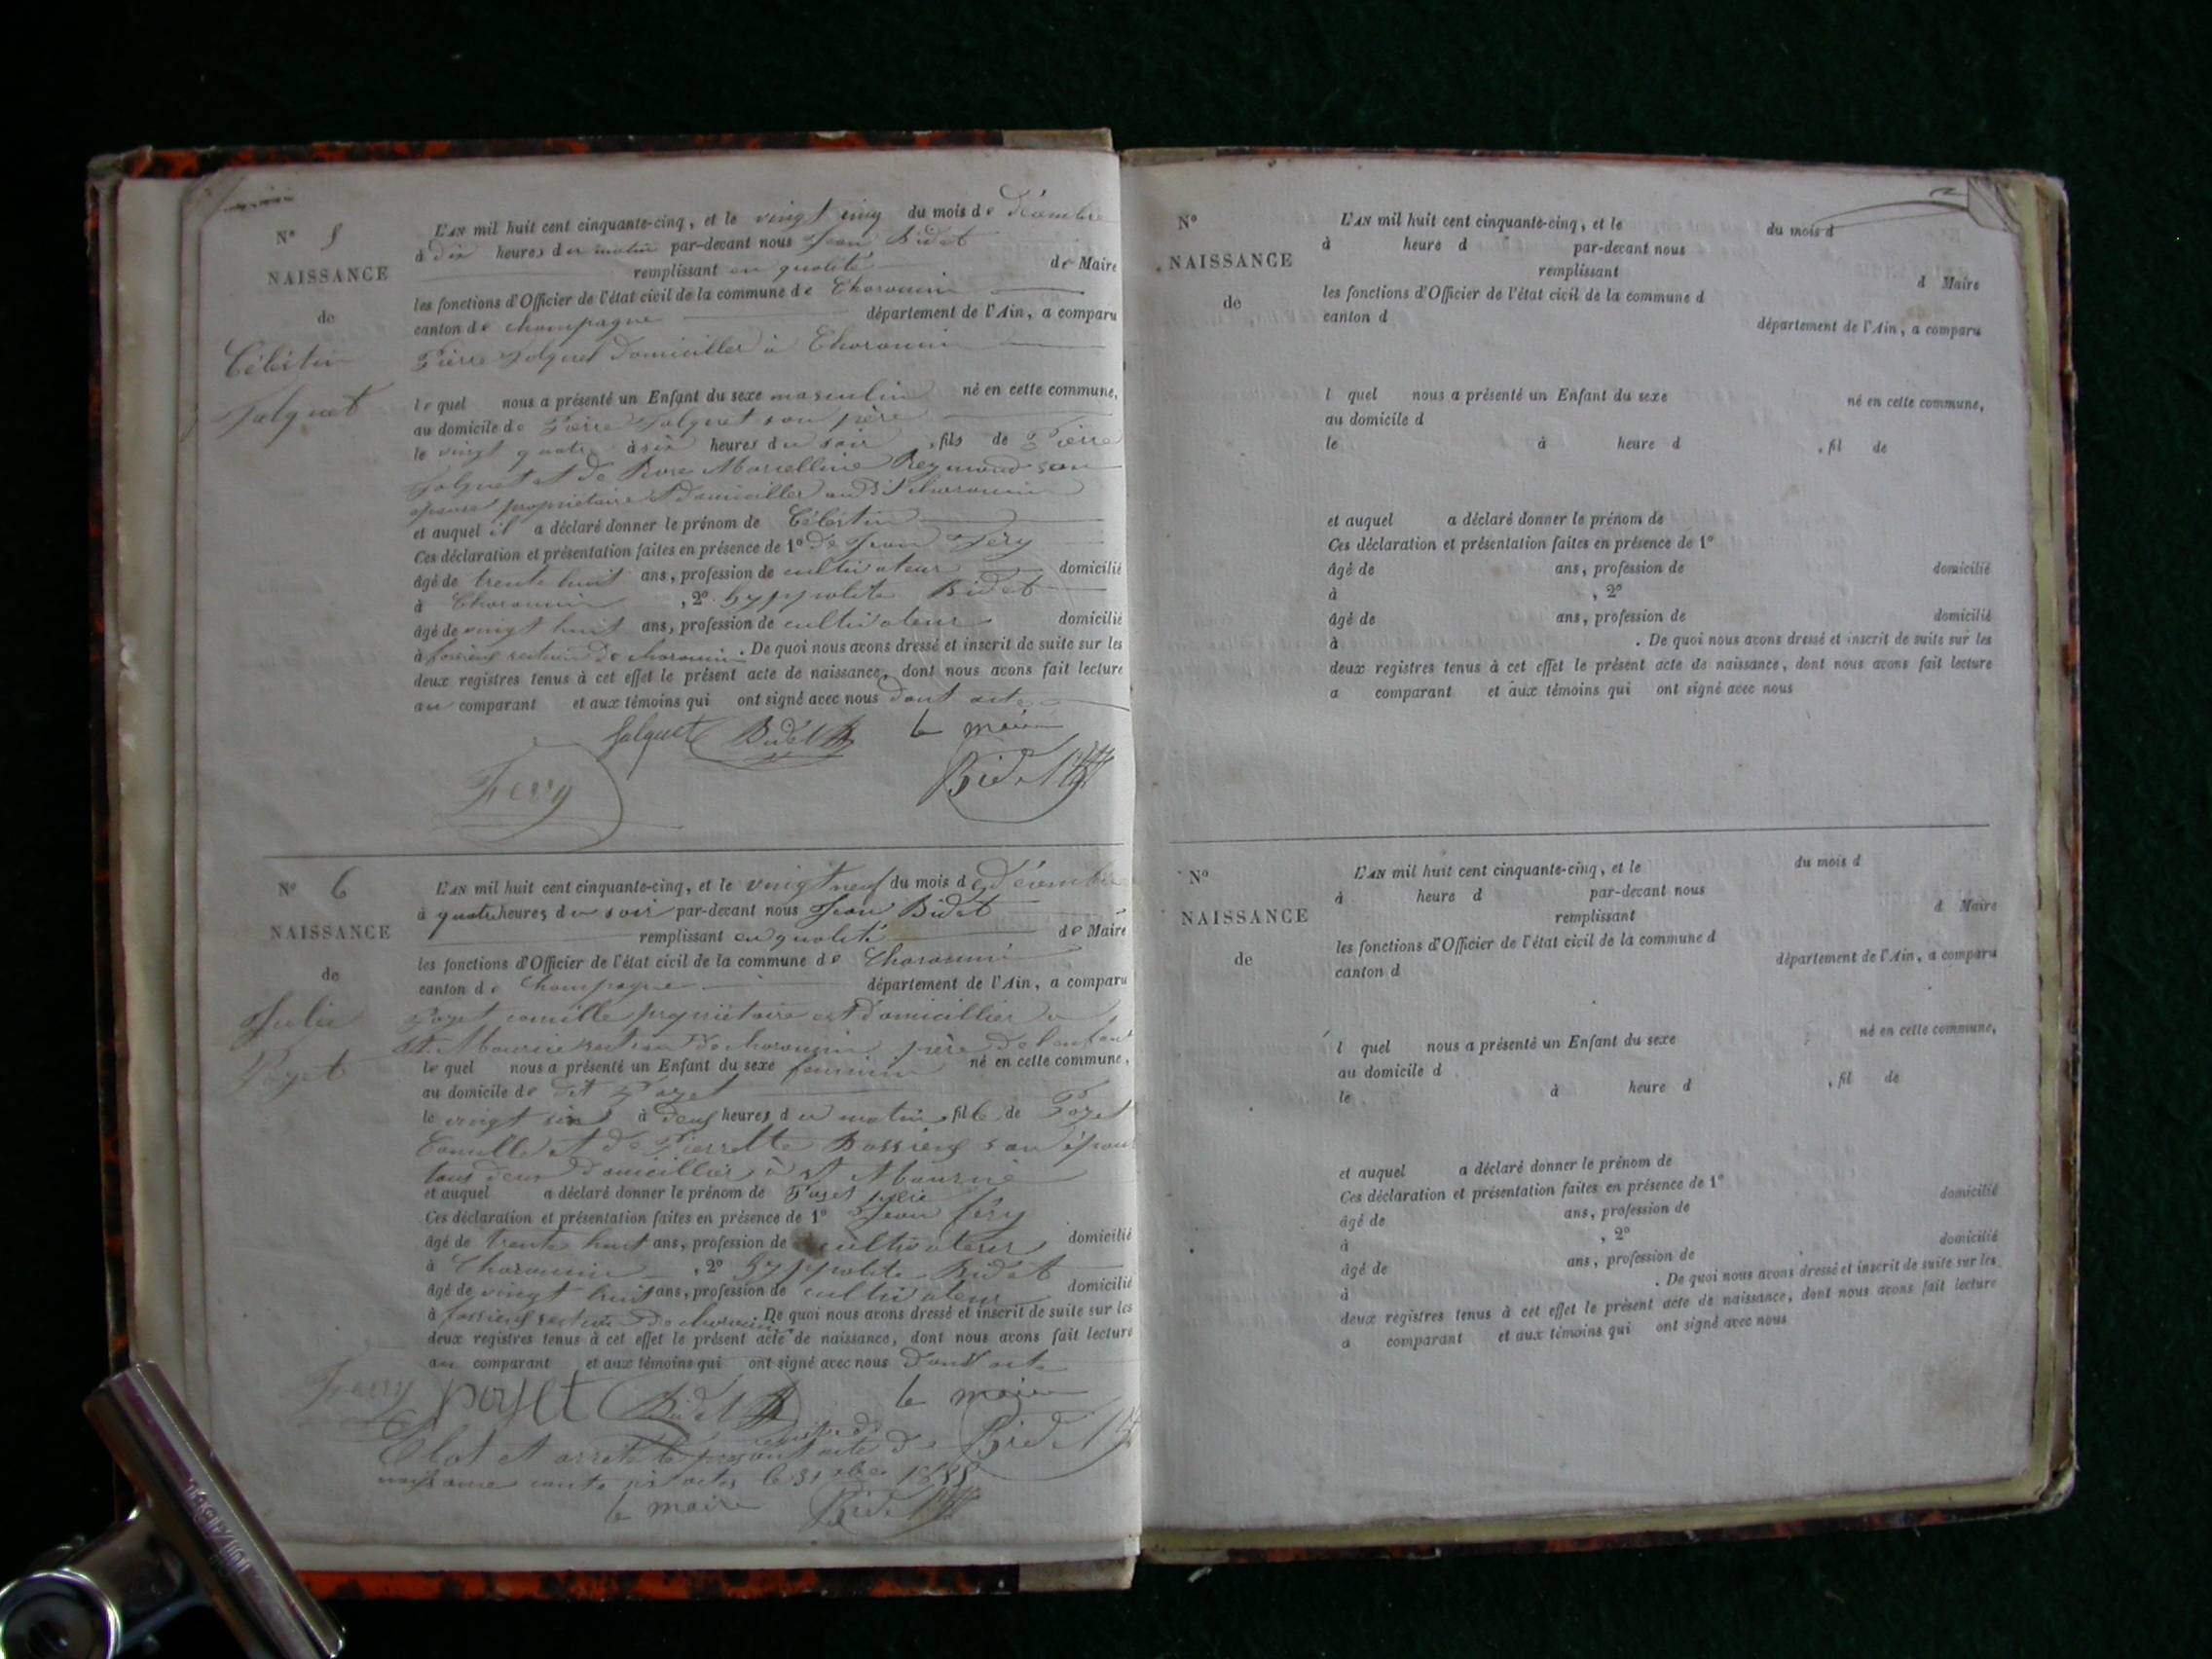 N° 5
NAISSANCE
de
Célestin
Jolquet
L'AN mil huit cent cinquante-cinq, et le vingt cinq du mois de décembre
à dix heures du matin par-devant nous Jean Bidet
remplissant en qualité de Maire
les fonctions d'Officier de l'état civil de la commune de
canton de Champagne département de l'Ain, a comparu
Pierre domiciller à
lequel nous a présenté un Enfant du sexe masculin né en cette commune,
au domicile de Pierre Jolquet son père
le vingt quatre à six heures du soir, fils de Pierre
Jolquet et de Rose Marcelline Reymond son
épouse propriétaire et domiciller au dit
et auquel il a déclaré donner le prénom de Célestin
Ces déclaration et présentation faites en présence de 1° de Jean Féry
âgé de trente huit ans, profession de cultivateur domicilié
à , 2° hyppolite Bidet
âgé de vingt huit ans, profession de cultivateur domicilié
à fossieux section de . De quoi nous avons dressé et inscrit de suite sur les
deux registres tenus à cet effet le présent acte de naissance, dont nous avons fait lecture
au comparant et aux témoins qui ont signé avec nous dont acte
Jolquet Bidet le maire
Fery Bidet
N° 6
NAISSANCE
de
Julie
Pozet
L'AN mil huit cent cinquante-cinq, et le vingt neuf du mois de décembre
à quatre heures du soir par-devant nous Jean Bidet
remplissant en qualité de Maire
les fonctions d'Officier de l'état civil de la commune de
canton de Champagne département de l'Ain, a comparu
Pozet camille propriétaire est domicillier a
St Maurice section de père de l'enfant
lequel nous a présenté un Enfant du sexe feminin né en cette commune,
au domicile de dit Pozet
le vingt six à deux heures du matin, fille de Pozet
Camille et de Pierrette son épouse
tous deux domicillier à St Maurice
et auquel a déclaré donner le prénom de Pozet julie
Ces déclaration et présentation faites en présence de 1° Jean féry
âgé de trente huit ans, profession de cultivateur domicilié
à , 2° hyppolite Bidet
âgé de vingt huit ans, profession de cultivateur domicilié
à fossieux section de . De quoi nous avons dressé et inscrit de suite sur les
deux registres tenus à cet effet le présent acte de naissance, dont nous avons fait lecture
au comparant et aux témoins qui ont signé avec nous dont acte
Ferry pozet Bidet le maire
Clot et arreté le présent acte de Bidet
naissance le 31 xbre 1855
le maire Bidet
N°
NAISSANCE
de
L'AN mil huit cent cinquante-cinq, et le du mois d
à heure d par-devant nous
remplissant d Maire
les fonctions d'Officier de l'état civil de la commune d
canton d département de l'Ain, a comparu
l quel nous a présenté un Enfant du sexe né en cette commune,
au domicile d
le à heure d , fil de
et auquel a déclaré donner le prénom de
Ces déclaration et présentation faites en présence de 1°
âgé de ans, profession de domicilié
à , 2°
âgé de ans, profession de domicilié
à . De quoi nous avons dressé et inscrit de suite sur les
deux registres tenus à cet effet le présent acte de naissance, dont nous avons fait lecture
a comparant et aux témoins qui ont signé avec nous
N°
NAISSANCE
de
L'AN mil huit cent cinquante-cinq, et le du mois d
à heure d par-devant nous
remplissant d Maire
les fonctions d'Officier de l'état civil de la commune d
canton d département de l'Ain, a comparu
l quel nous a présenté un Enfant du sexe né en cette commune,
au domicile d
le à heure d , fil de
et auquel a déclaré donner le prénom de
Ces déclaration et présentation faites en présence de 1°
âgé de ans, profession de domicilié
à , 2°
âgé de ans, profession de domicilié
à . De quoi nous avons dressé et inscrit de suite sur les
deux registres tenus à cet effet le présent acte de naissance, dont nous avons fait lecture
a comparant et aux témoins qui ont signé avec nous